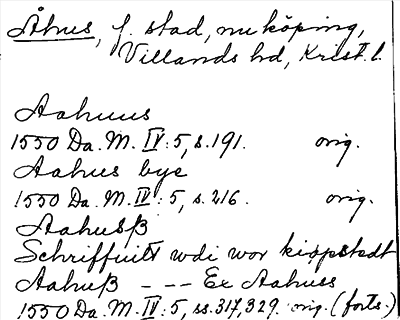 Åhus, f. stad, nu köping,
Villands hd, Krist. l.
Aahuus
1550 Da. M. IV: 5, s. 191. orig.
Aahus bye
1550 Da. M. IV: 5, s. 216. orig.
Aahusß
wdi wor kiøpstedt
Aahuß - - - Ex Aahuss
1550 Da. M. IV: 5, ss. 317, 329. orig. (forts.)